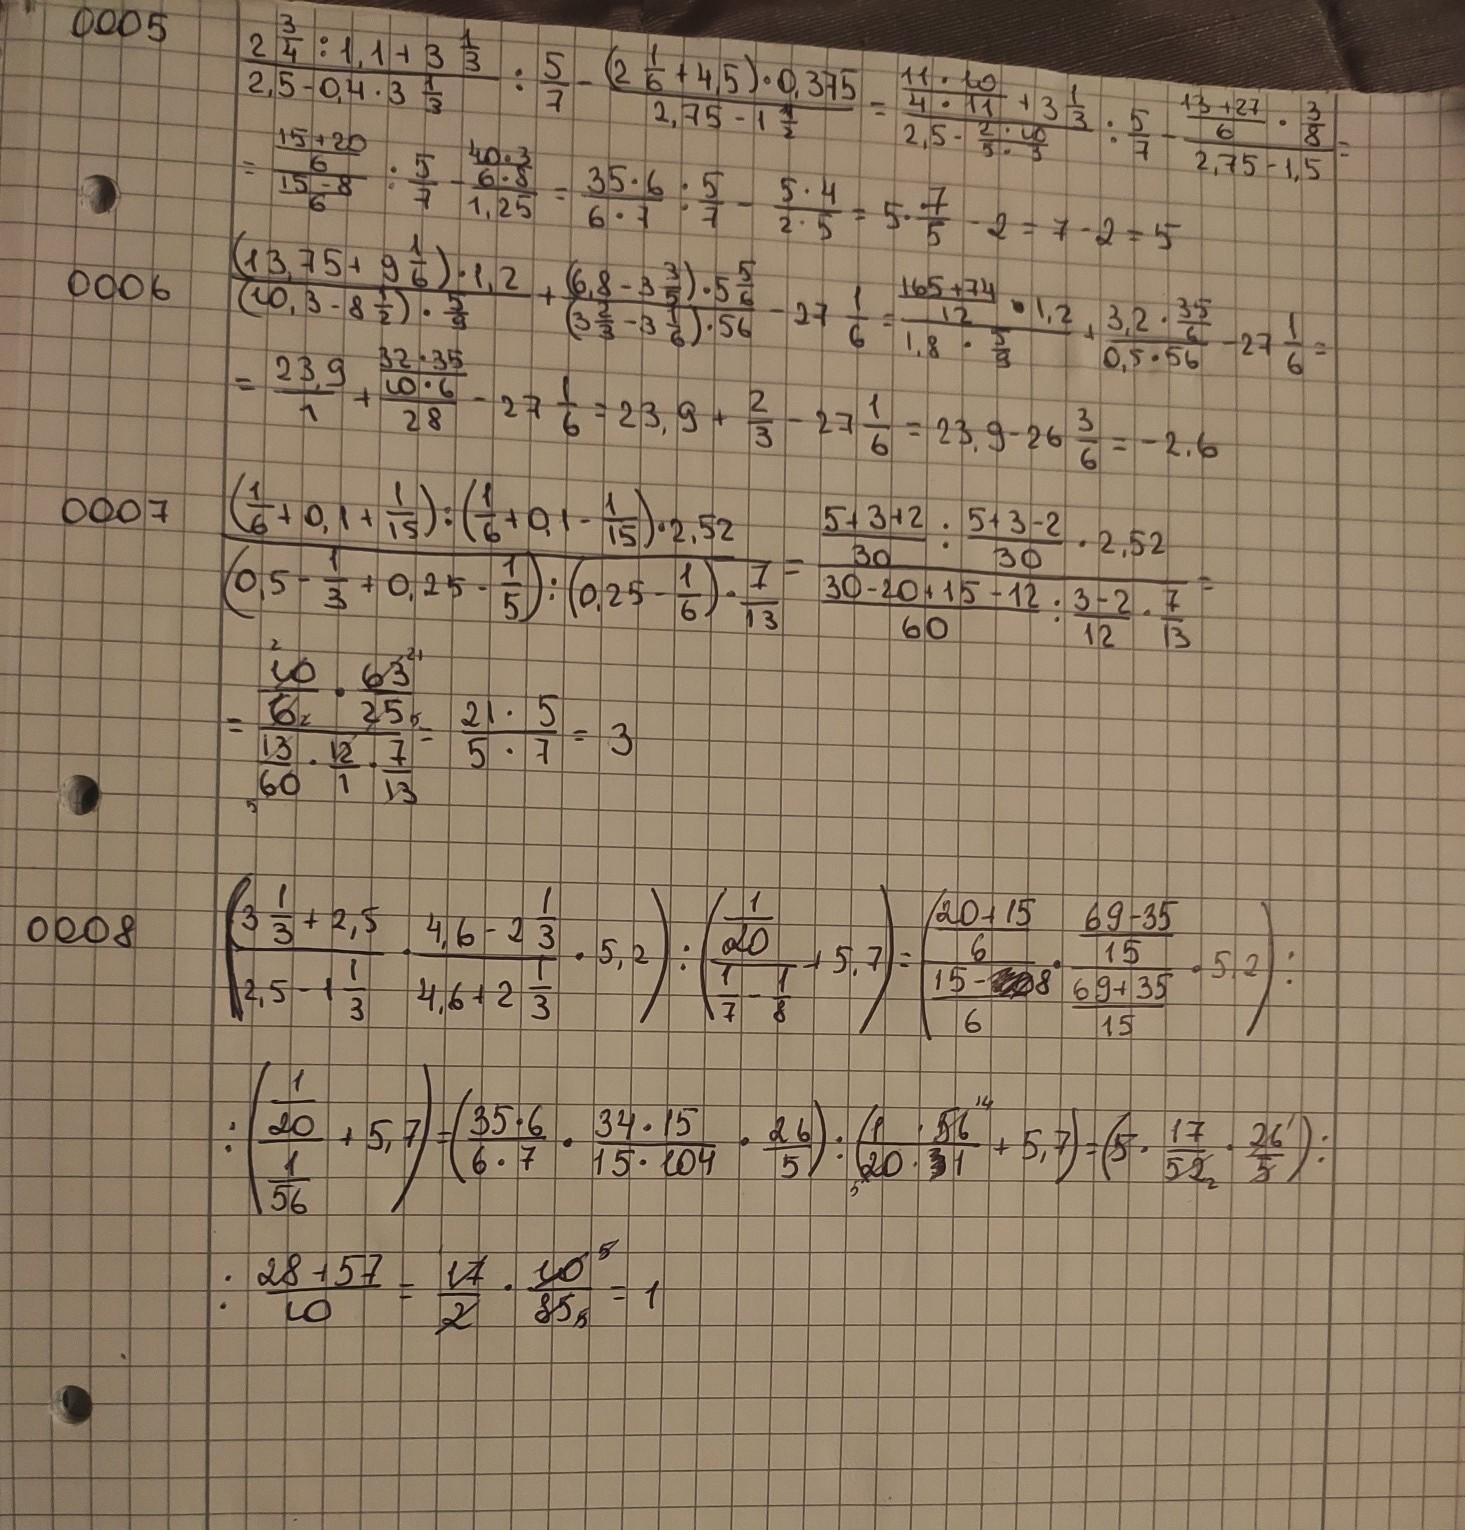 0005 (2 3/4 : 1,1 + 3 1/3)/(2,5 - 0,4 · 3 1/3) : 5/7 - ((2 1/6 + 4,5) · 0,375)/(2,75 - 1 1/2) = ((11 · 10)/(4 · 11) + 3 1/3)/(2,5 - (2 · 10)/(5 · 3)) : 5/7 - ((13+27)/6 · 3/8)/(2,75 - 1,5) =
= ((15+20)/6)/((15-8)/6) : 5/7 - ((40·3)/(6·8))/1,25 = (35·6)/(6·7) : 5/7 - (5·4)/(2·5) = 5 · 7/5 - 2 = 7 - 2 = 5
0006 ((13,75 + 9 1/6) · 1,2)/((10,3 - 8 1/2) · 5/9) + ((6,8 - 3 3/5) · 5 5/6)/((3 2/3 - 3 1/6) · 56) - 27 1/6 = ((165+74)/12 · 1,2)/(1,8 · 5/9) + (3,2 · 35/6)/(0,5 · 56) - 27 1/6 =
= 23,9/1 + ((32·35)/(10·6))/28 - 27 1/6 = 23,9 + 2/3 - 27 1/6 = 23,9 - 26 3/6 = -2,6
0007 ((1/6 + 0,1 + 1/15) : (1/6 + 0,1 - 1/15) · 2,52)/((0,5 - 1/3 + 0,25 - 1/5) : (0,25 - 1/6) · 7/13) = ((5+3+2)/30 : (5+3-2)/30 · 2,52)/((30-20+15-12)/60 : (3-2)/12 · 7/13) =
= (10/6 · 63/25)/(13/60 · 12/1 · 7/13) = (21 · 5)/(5 · 7) = 3
0008 ((3 1/3 + 2,5)/(2,5 - 1 1/3) · (4,6 - 2 1/3)/(4,6 + 2 1/3) · 5,2) : ((1/20)/(1/7 - 1/8) + 5,7) = (((20+15)/6)/((15-8)/6) · ((69-35)/15)/((69+35)/15) · 5,2) :
: ((1/20)/(1/56) + 5,7) = ((35·6)/(6·7) · (34·15)/(15·104) · 26/5) : ((1 · 56)/(20 · 1) + 5,7) = (5 · 17/52 · 26/5) :
: (28+57)/10 = 17/2 · 10/85 = 1